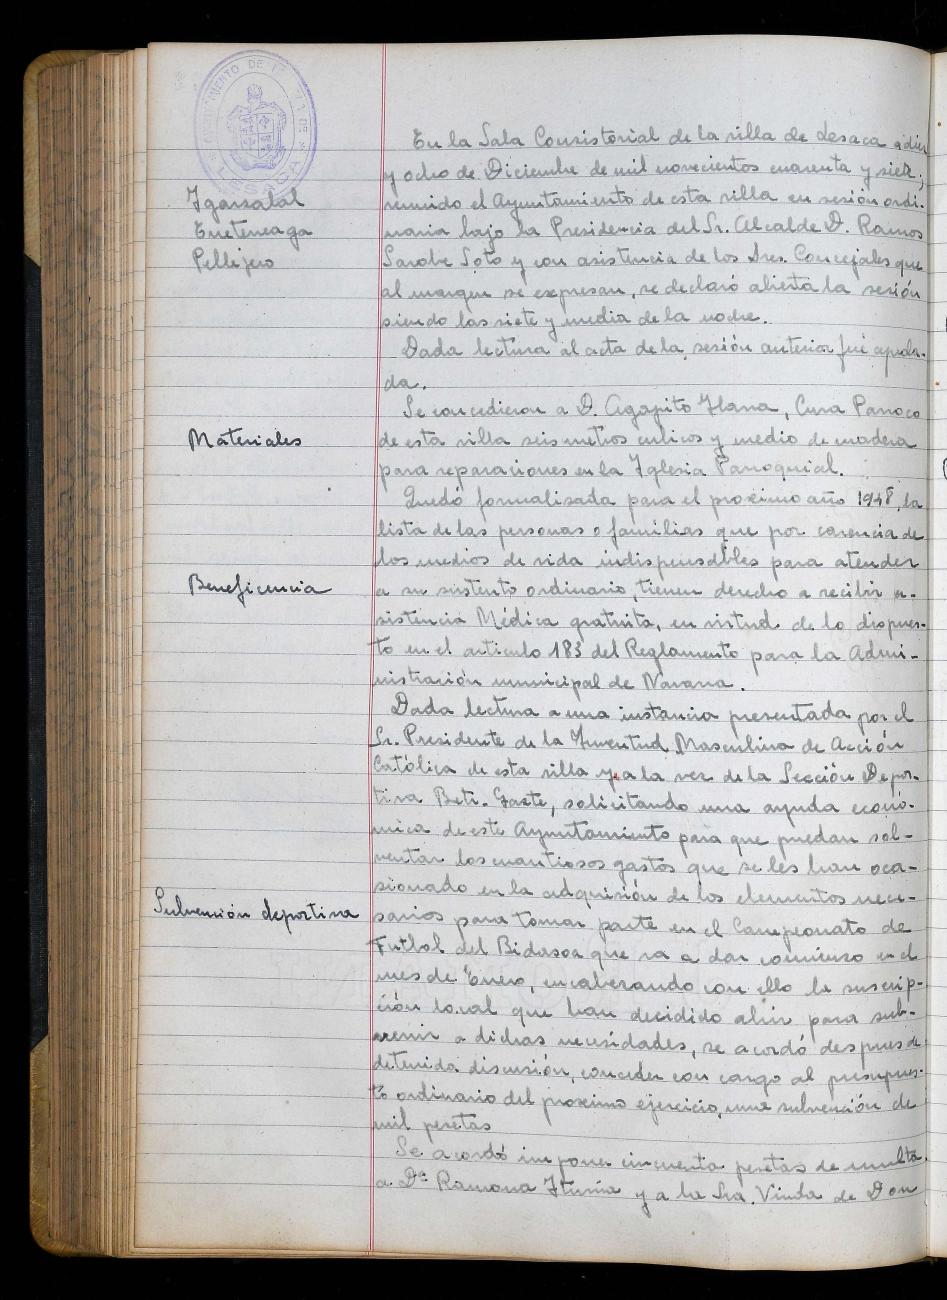 AYUNTAMIENTO DE
LESACA
Igarzabal
Errteneaga
Pellejero
En la Sala Consistorial de la villa de Lesaca a diez
y ocho de Diciembre de mil novecientos cuarenta y siete;
reunido el Ayuntamiento de esta villa en sesión ordi-
naria bajo la Presidencia del Sr. Alcalde D. Ramos
Sarobe Soto y con asistencia de los Sres. Concejales que
al margen se expresan, se declaró abierta la sesión
siendo las siete y media de la noche.
Dada lectura al acta de la sesión anterior fué aproba-
da.
Materiales
Se concedieron a D. Agapito Ilarra, Cura Parroco
de esta villa seis metros cubicos y medio de madera
para reparaciones en la Iglesia Parroquial.
Beneficencia
Quedó formalizada para el proximo año 1948, la
lista de las personas o familias que por carencia de
los medios de vida indispensables para atender
a su sustento ordinario, tienen derecho a recibir a-
sistencia Médica gratuita, en virtud de lo dispues-
to en el articulo 183 del Reglamento para la Admi-
nistración municipal de Navarra.
Subvención deportiva
Dada lectura a una instancia presentada por el
Sr. Presidente de la Juventud Masculina de Acción
Católica de esta villa y a la vez de la Sección Depor-
tiva Beti-Gazte, solicitando una ayuda econó-
mica de este Ayuntamiento para que puedan sol-
ventar los cuantiosos gastos que se les han oca-
sionado en la adquisión de los elementos nece-
sarios para tomar parte en el Campeonato de
Futbol del Bidasoa que va a dar comienzo en el
mes de Enero, encabezando con ello la suscrip-
ción local que han decidido abrir para sub-
venir a dichas necesidades, se acordó despues de
detenida discusión, conceder con cargo al presupues-
to ordinario del proximo ejercicio, una subvención de
mil pesetas
Se acordó imponer cincuenta pesetas de multa
a Dª Ramona Iturria y a la Sra. Viuda de Don